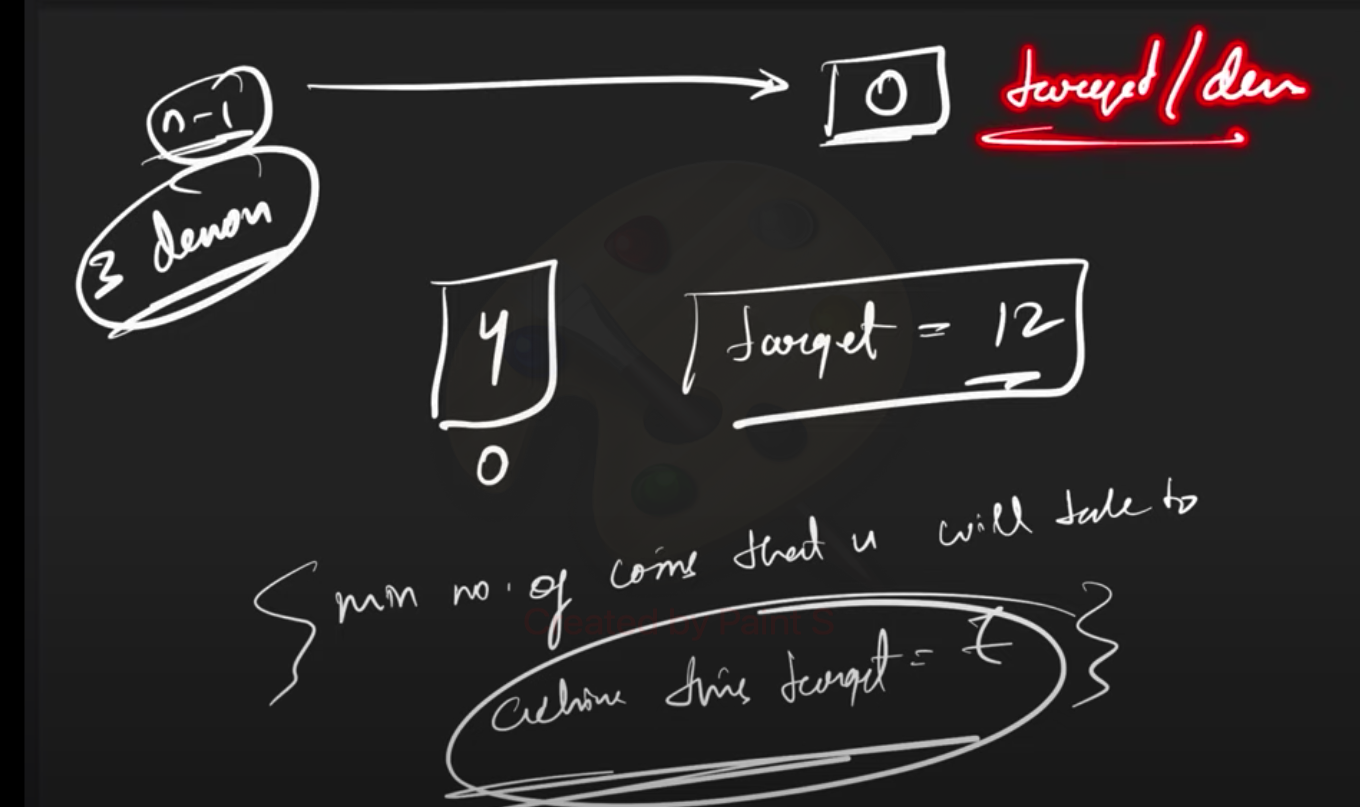 n-1
0
target/den
3 denom
4
target = 12
0
min no. of coins that u will take to
achieve this target = t
Created by Paint S